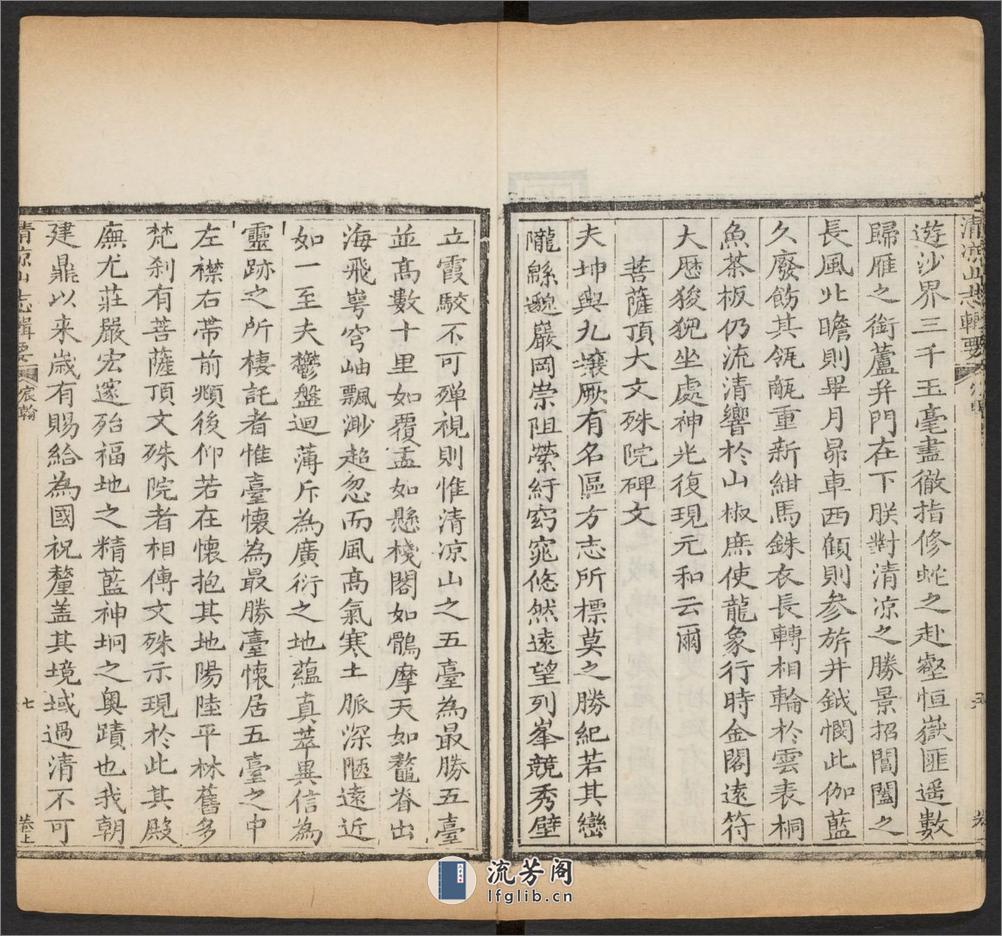 清涼山志輯要
遊沙界三千玉毫盡徹指修蛇之赴壑恒嶽匪遥數
歸雁之銜蘆弁門在下朕對清凉之勝景招閶闔之
長風北瞻則畢月昴車西顧則參旂井鉞憫此伽藍
久廢飭其瓴甋重新紺馬銖衣長轉相輪於雲表桐
魚茶板仍流清響於山椒庶使龍象行時金閣遠符
大厯狻猊坐處神光復現元和云爾
菩薩頂大文殊院碑文
夫坤輿九瀼厥有名區方志所標莫之勝紀若其巒
隴緜邈巖岡崇阻縈紆窈窕悠然遠望列峯競秀壁
立霞駮不可殫視則惟清凉山之五臺為最勝五臺
並髙數十里如覆盂如懸棧閣如鶻摩天如鼇脊出
海飛㠋穹岫飄渺超忽而風髙氣寒土脈深陿遠近
如一至夫欝盤迴薄斥為廣衍之地蘊真萃異信為
靈跡之所棲託者惟臺懷為最勝臺懷居五臺之中
左襟右帶前頫後仰若在懷抱其地陽陸平林舊多
梵刹有菩薩頂文殊院者相傳文殊示現於此其殿
廡尤莊嚴宏邃殆福地之精藍神坰之奥蹟也我朝
建鼎以来歳有賜給為國祝釐盖其境域過清不可
清凉山志輯要
宸翰
七
卷上
流芳阁
lfglib.cn